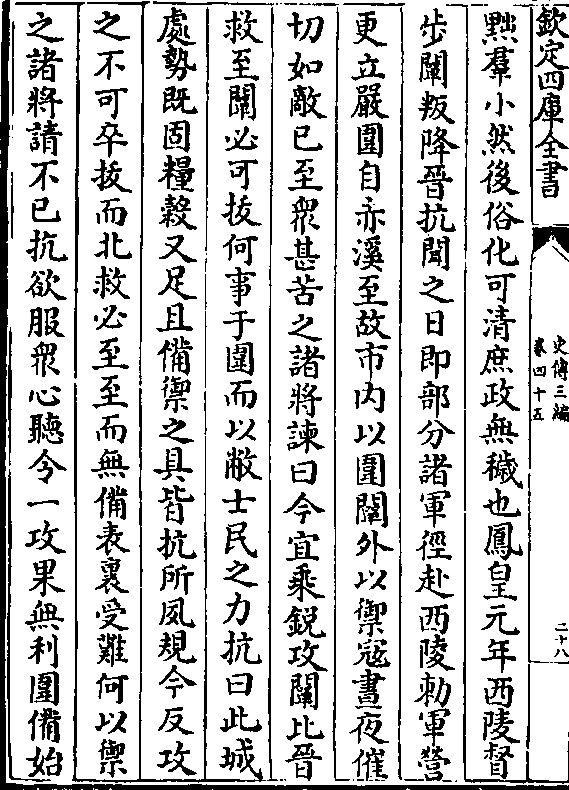 欽定四庫全書
史傳三編
卷四十五
二十八
黜羣小然後俗化可清庶政無穢也鳳皇元年西陵督
步闡叛降晉抗聞之日即部分諸軍徑赴西陵勅軍營
更立嚴圍自赤溪至故市内以圍闡外以禦寇晝夜催
切如敵已至衆甚苦之諸將諫曰今宜乘鋭攻闡比晉
救至闡必可拔何事于圍而以敝士民之力抗曰此城
處勢既固糧榖又足且備禦之具皆抗所夙規今反攻
之不可卒拔而北救必至至而無備表裏受難何以禦
之諸將請不已抗欲服衆心聽令一攻果無利圍備始